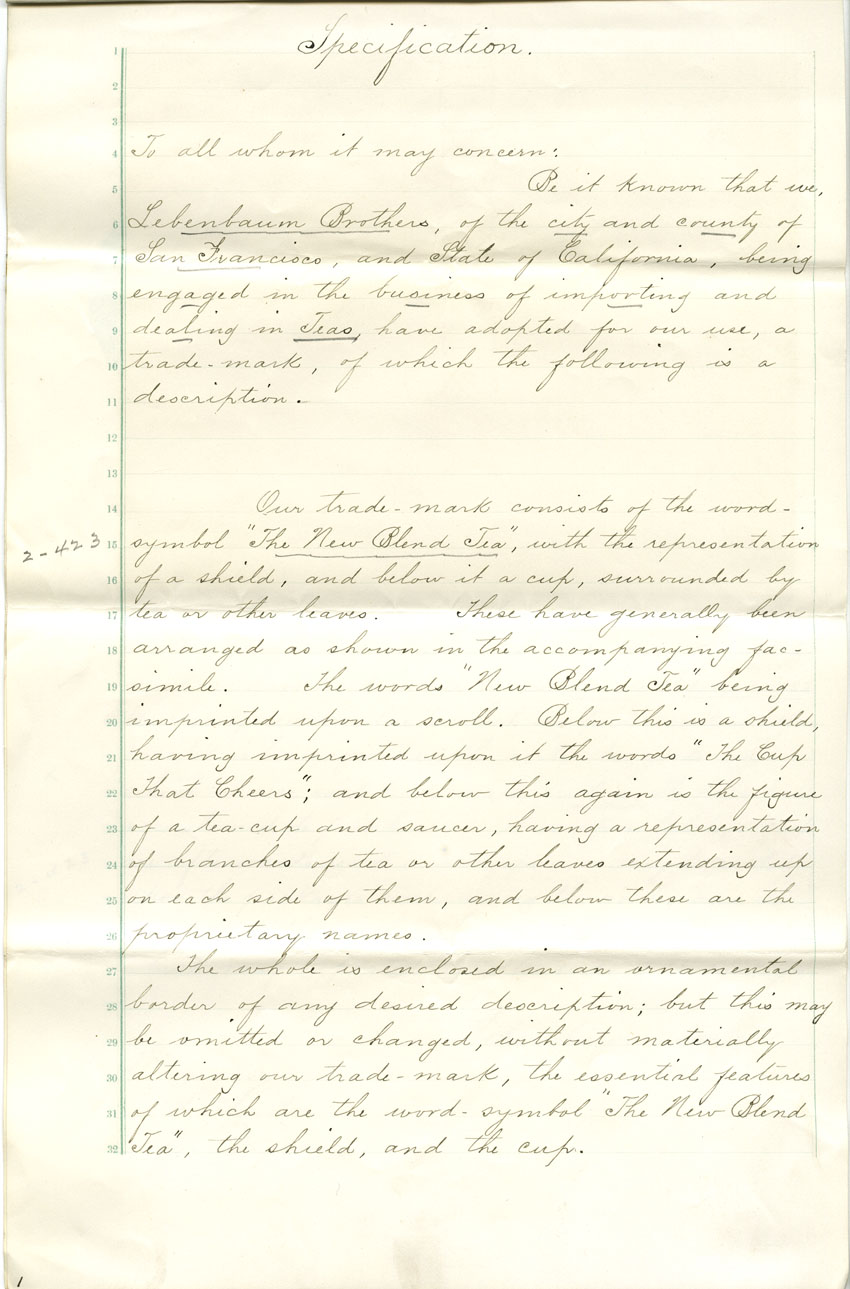 Specification.
1
2
3
4 To all whom it may concern:
5 Be it known that we,
6 Lebenbaum Brothers, of the city and county of
7 San Francisco, and State of California, being
8 engaged in the business of importing and
9 dealing in Teas, have adopted for our use, a
10 trade-mark, of which the following is a
11 description.
12
13
14 Our trade-mark consists of the word-
2-423
15 symbol "The New Blend Tea", with the representation
16 of a shield, and below it a cup, surrounded by
17 tea or other leaves. These have generally been
18 arranged as shown in the accompanying fac-
19 simile. The words "New Blend Tea" being
20 imprinted upon a scroll. Below this is a shield,
21 having imprinted upon it the words "The Cup
22 That Cheers"; and below this again is the figure
23 of a tea-cup and saucer, having a representation
24 of branches of tea or other leaves extending up
25 on each side of them, and below these are the
26 proprietary names.
27 The whole is enclosed in an ornamental
28 border of any desired description; but this may
29 be omitted or changed, without materially
30 altering our trade-mark, the essential features
31 of which are the word-symbol "The New Blend
32 Tea", the shield, and the cup.
1